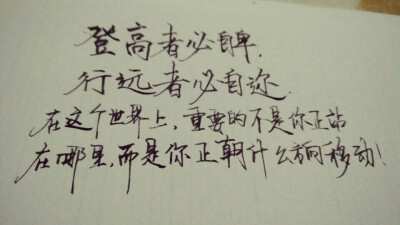 登高者必自卑.
行远者必自迩.
在这个世界上,重要的不是你正站
在哪里,而是你正朝什么方向移动!